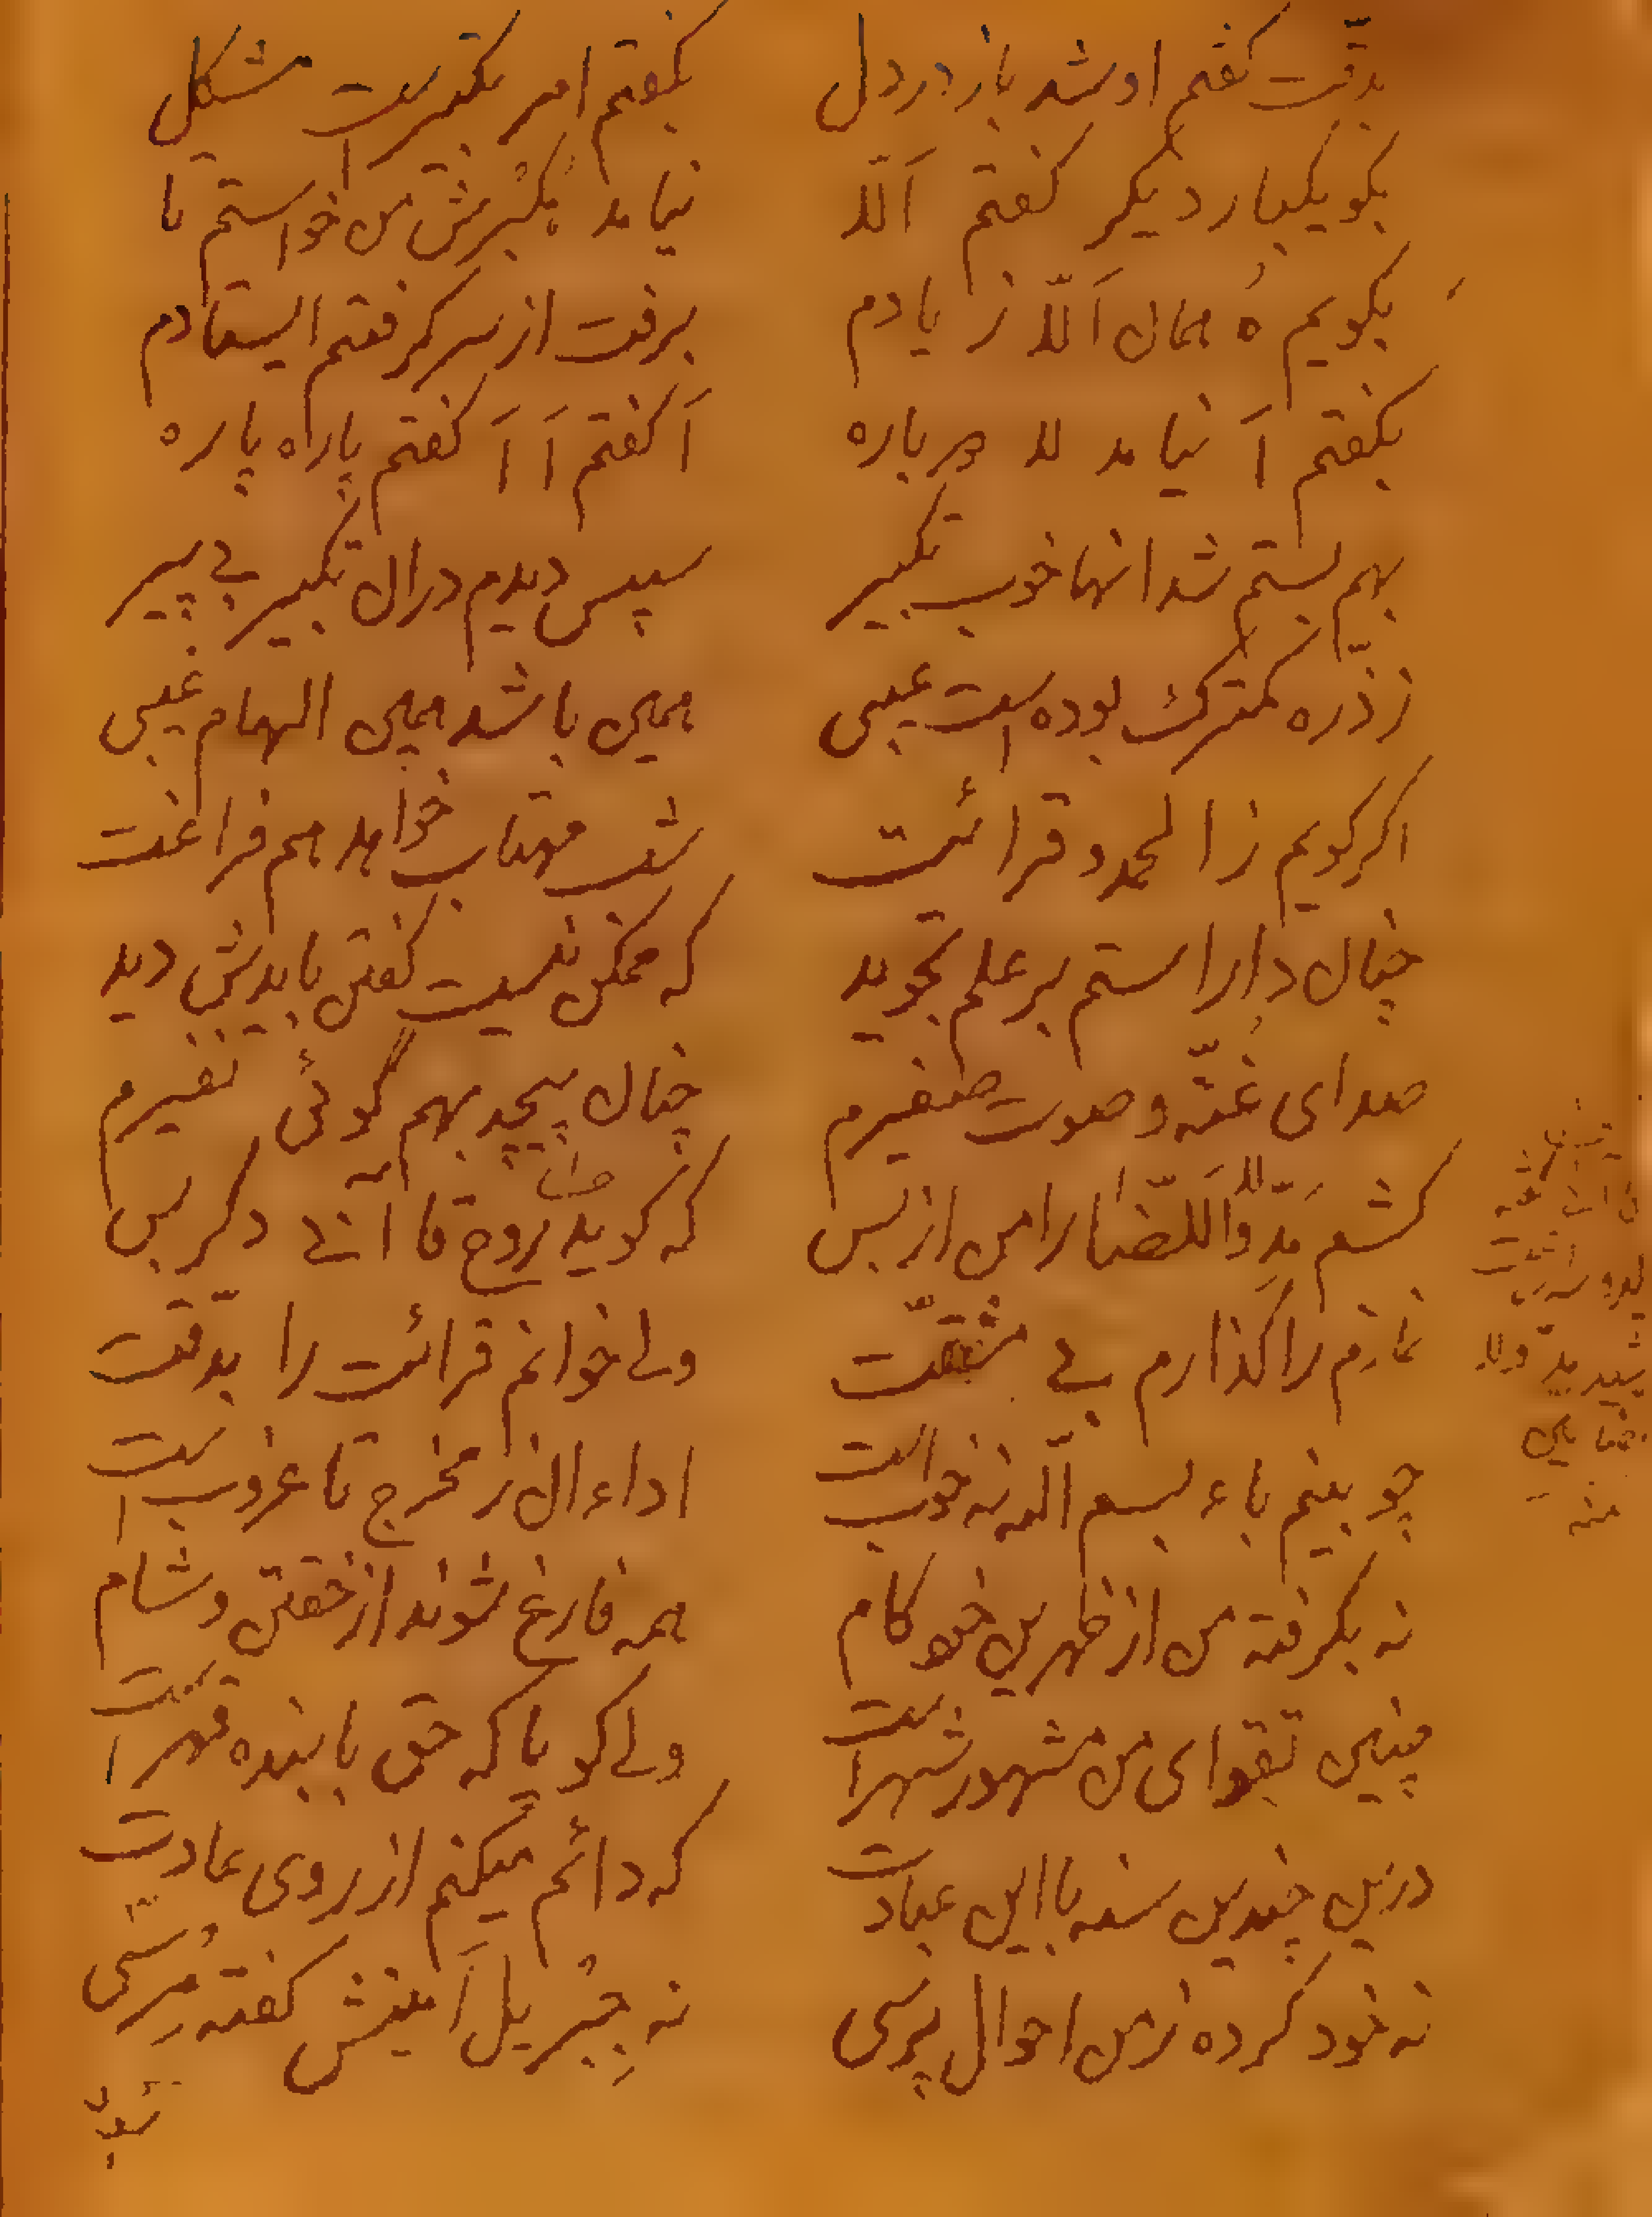 بدقّت کفتم او شد باز در دل
بکفتم امر تکبیرست مشکل
بکو یکبار دیکر کفتم اَللّا
نیامد بُکبْرش من خواستم تا
بکویم هُ همان اَللّا ز یادم
برفت از سر کرفتم ایستادم
بکفتم اَ نیامد للا دوباره
اَ کفتم اَ اَ کفتم پاره پاره
بهم بستم شد انها خوب تکبیر
سپس دیدم در ان تکبیر بی پیر
ز ذرّه کمترک بوده است عیبی
همین باشد همین الهام غیبی
اکر کویم ز الحمد و قرائت
شب مهتاب خواهد هم فراغت
چنان دارا ستم بر علم تجوید
که ممکن نیست کفتن بایدش دید
صدای غُنّه و صوت صفیرم
چنان پیچد بهم گوئی نفیرم
کشم مَدِّ وَلَا الضّا را من از بس
که کوید روح قاآنی دکر بس
نمازم را کذارم بی مشقّت
ولی خوانم قرائت را بدّقت
چو بینم باء بسم اللّه نه خوب است
اداء ان ز مخرج تا غروب است
نه بکرفته من از ظهرین خود کام
همه فارغ شوند از خفتن و شام
چنین تقوای من مشهور شهر است
ولی کویا که حق با بنده قهر است
درین چندین سنه با این عبادت
که دائم میکنم از روی عادت
نه خود کرده ز من احوال پرسی
نه جِبْریل اَمینش کفته مِرْسی